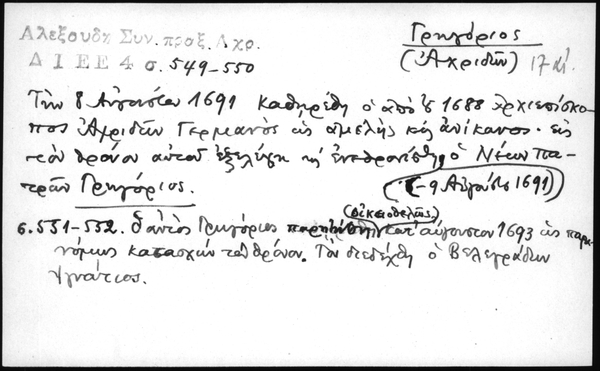 Αλεξουδη Συν. προξ. Αχρ.
Δ Ι Ε Ε 4 σ. 549-550
Γρηγόριος
(Ἀχριδῶν) 17 αἰ.
Τὴν 8 Αὐγούστου 1691 καθῃρέθη ὁ ἀπὸ 1688 ἀρχιεπίσκο-
πος Ἀχριδῶν Γερμανὸς ὡς ἀμελὴς καὶ ἀνίκανος· εἰς
τὸν θρόνον αὐτοῦ ἐξελέγη καὶ ἐνεθρονίσθη ὁ Νέων Πα-
τρῶν Γρηγόριος. (-9 Αὐγούστου 1691)
σ. 551-552. ὁ αὐτὸς Γρηγόριος (οἰκειοθελῶς) κατ' αὔγουστον 1693 ὡς παρα-
νόμως κατασχὼν τὸν θρόνον. Τὸν διεδέχθη ὁ Βελεγράδων
Ἰγνάτιος.